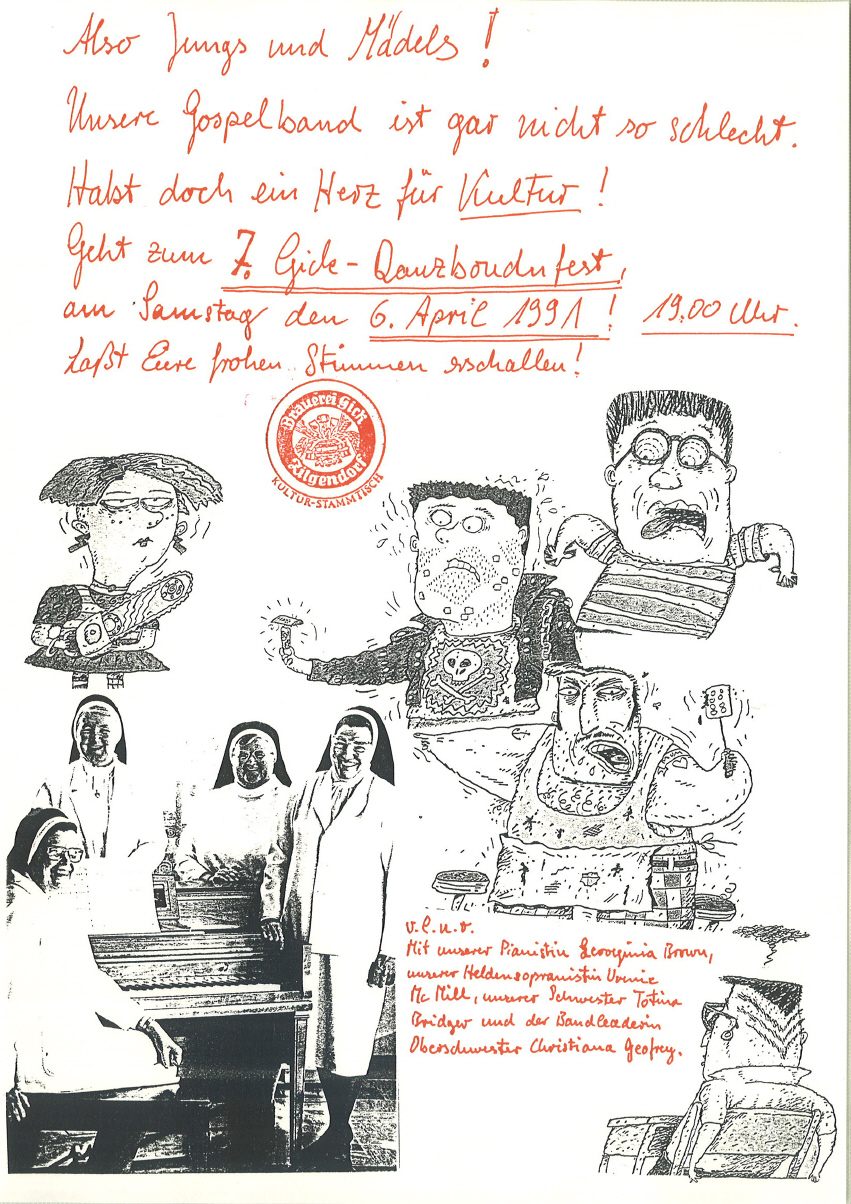 Also Jungs und Mädels!
Unsere Gospelband ist gar nicht so schlecht.
Habt doch ein Herz für Kultur!
Geht zum 7. Gick-Ranzboudnfest,
am Samstag den 6. April 1991! 19.00 Uhr.
Laßt Eure frohen Stimmen erschallen!
Brauerei Gick
Ilgendorf
KULTUR-STAMMTISCH
v.l.n.r.
Mit unserer Pianistin Brown,
unserer Heldensopranistin
Mc Mill, unserer Schwester Totina
Bridger und der Bandleaderin
Oberschwester Christiana Geofrey.